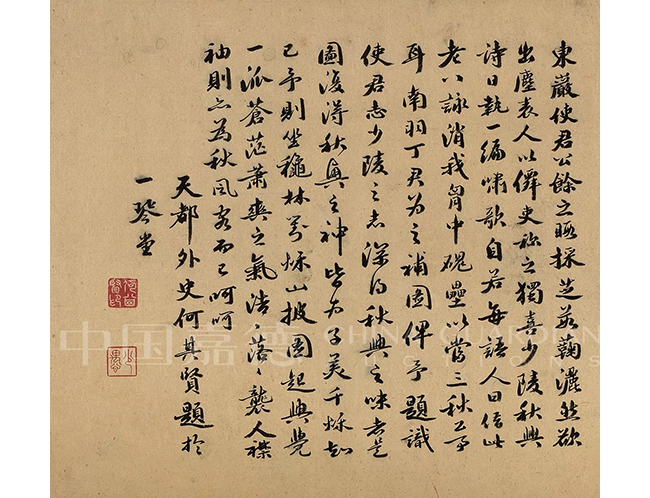 東巖使君公餘之暇採芝茹蘜灑然欲
出塵表人以僊吏称之獨喜少陵秋興
詩日執一編嘯歌自若每語人曰借此
老八詠消我胷中磈壘以當三秋丘壑
耳南羽丁君为之補圖俾予題識
使君志少陵之志深得秋興之味者是
圖復得秋興之神皆为子美千烁知
己予則坐穐林萬烁山披圖起興覺
一派蒼茫蕭爽之氣浩〻落〻襲人襟
袖則亦為秋風客而已呵呵
天都外史何其賢題於
一琴堂
中国嘉德 CHINA GUARDIAN